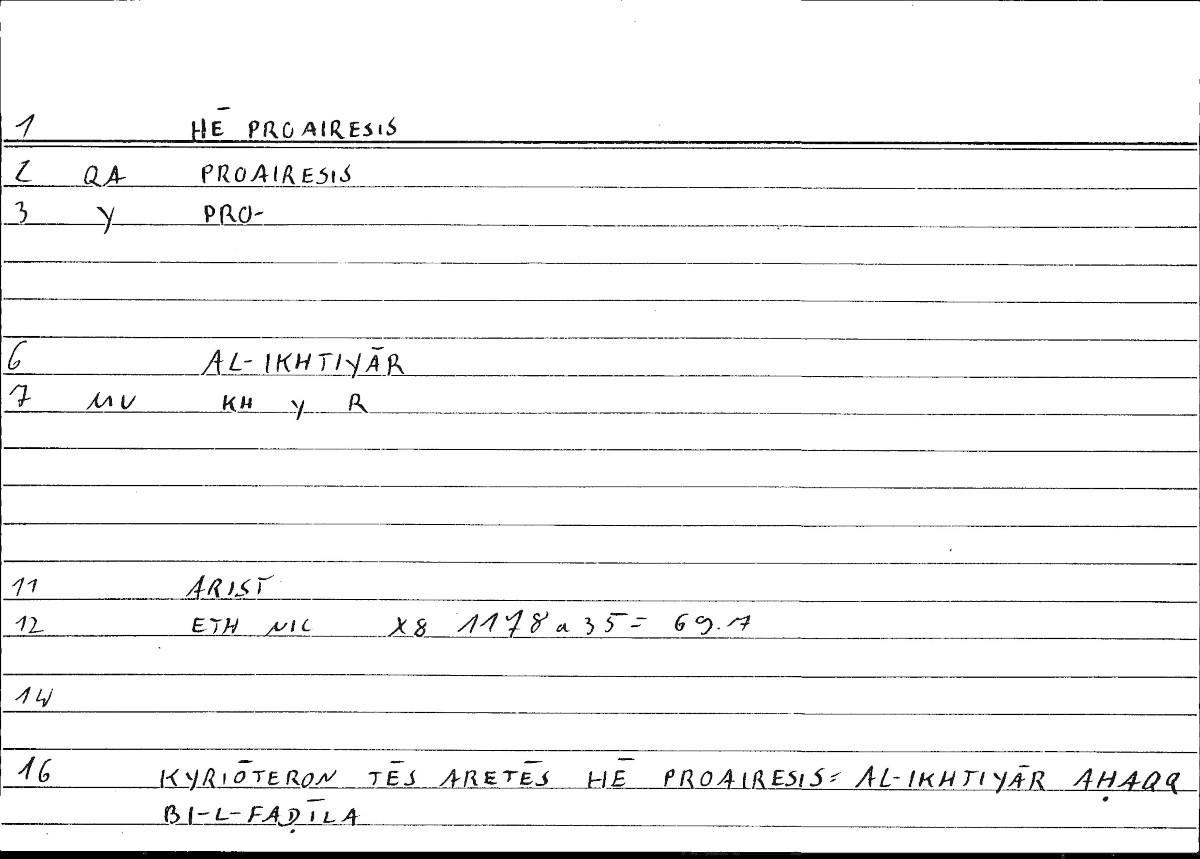 1 HĒ PROAIRESIS
2 QA PROAIRESIS
3 Y PRO-
6 AL-IKHTIYĀR
7 MV KH Y R
11 ARIST
12 ETH NIC X8 1178a35= 69.7
14
16 KYRIŌTERON TĒS ARETĒS HĒ PROAIRESIS= AL-IKHTIYĀR AḤAQQ
BI-L-FAḌĪLA